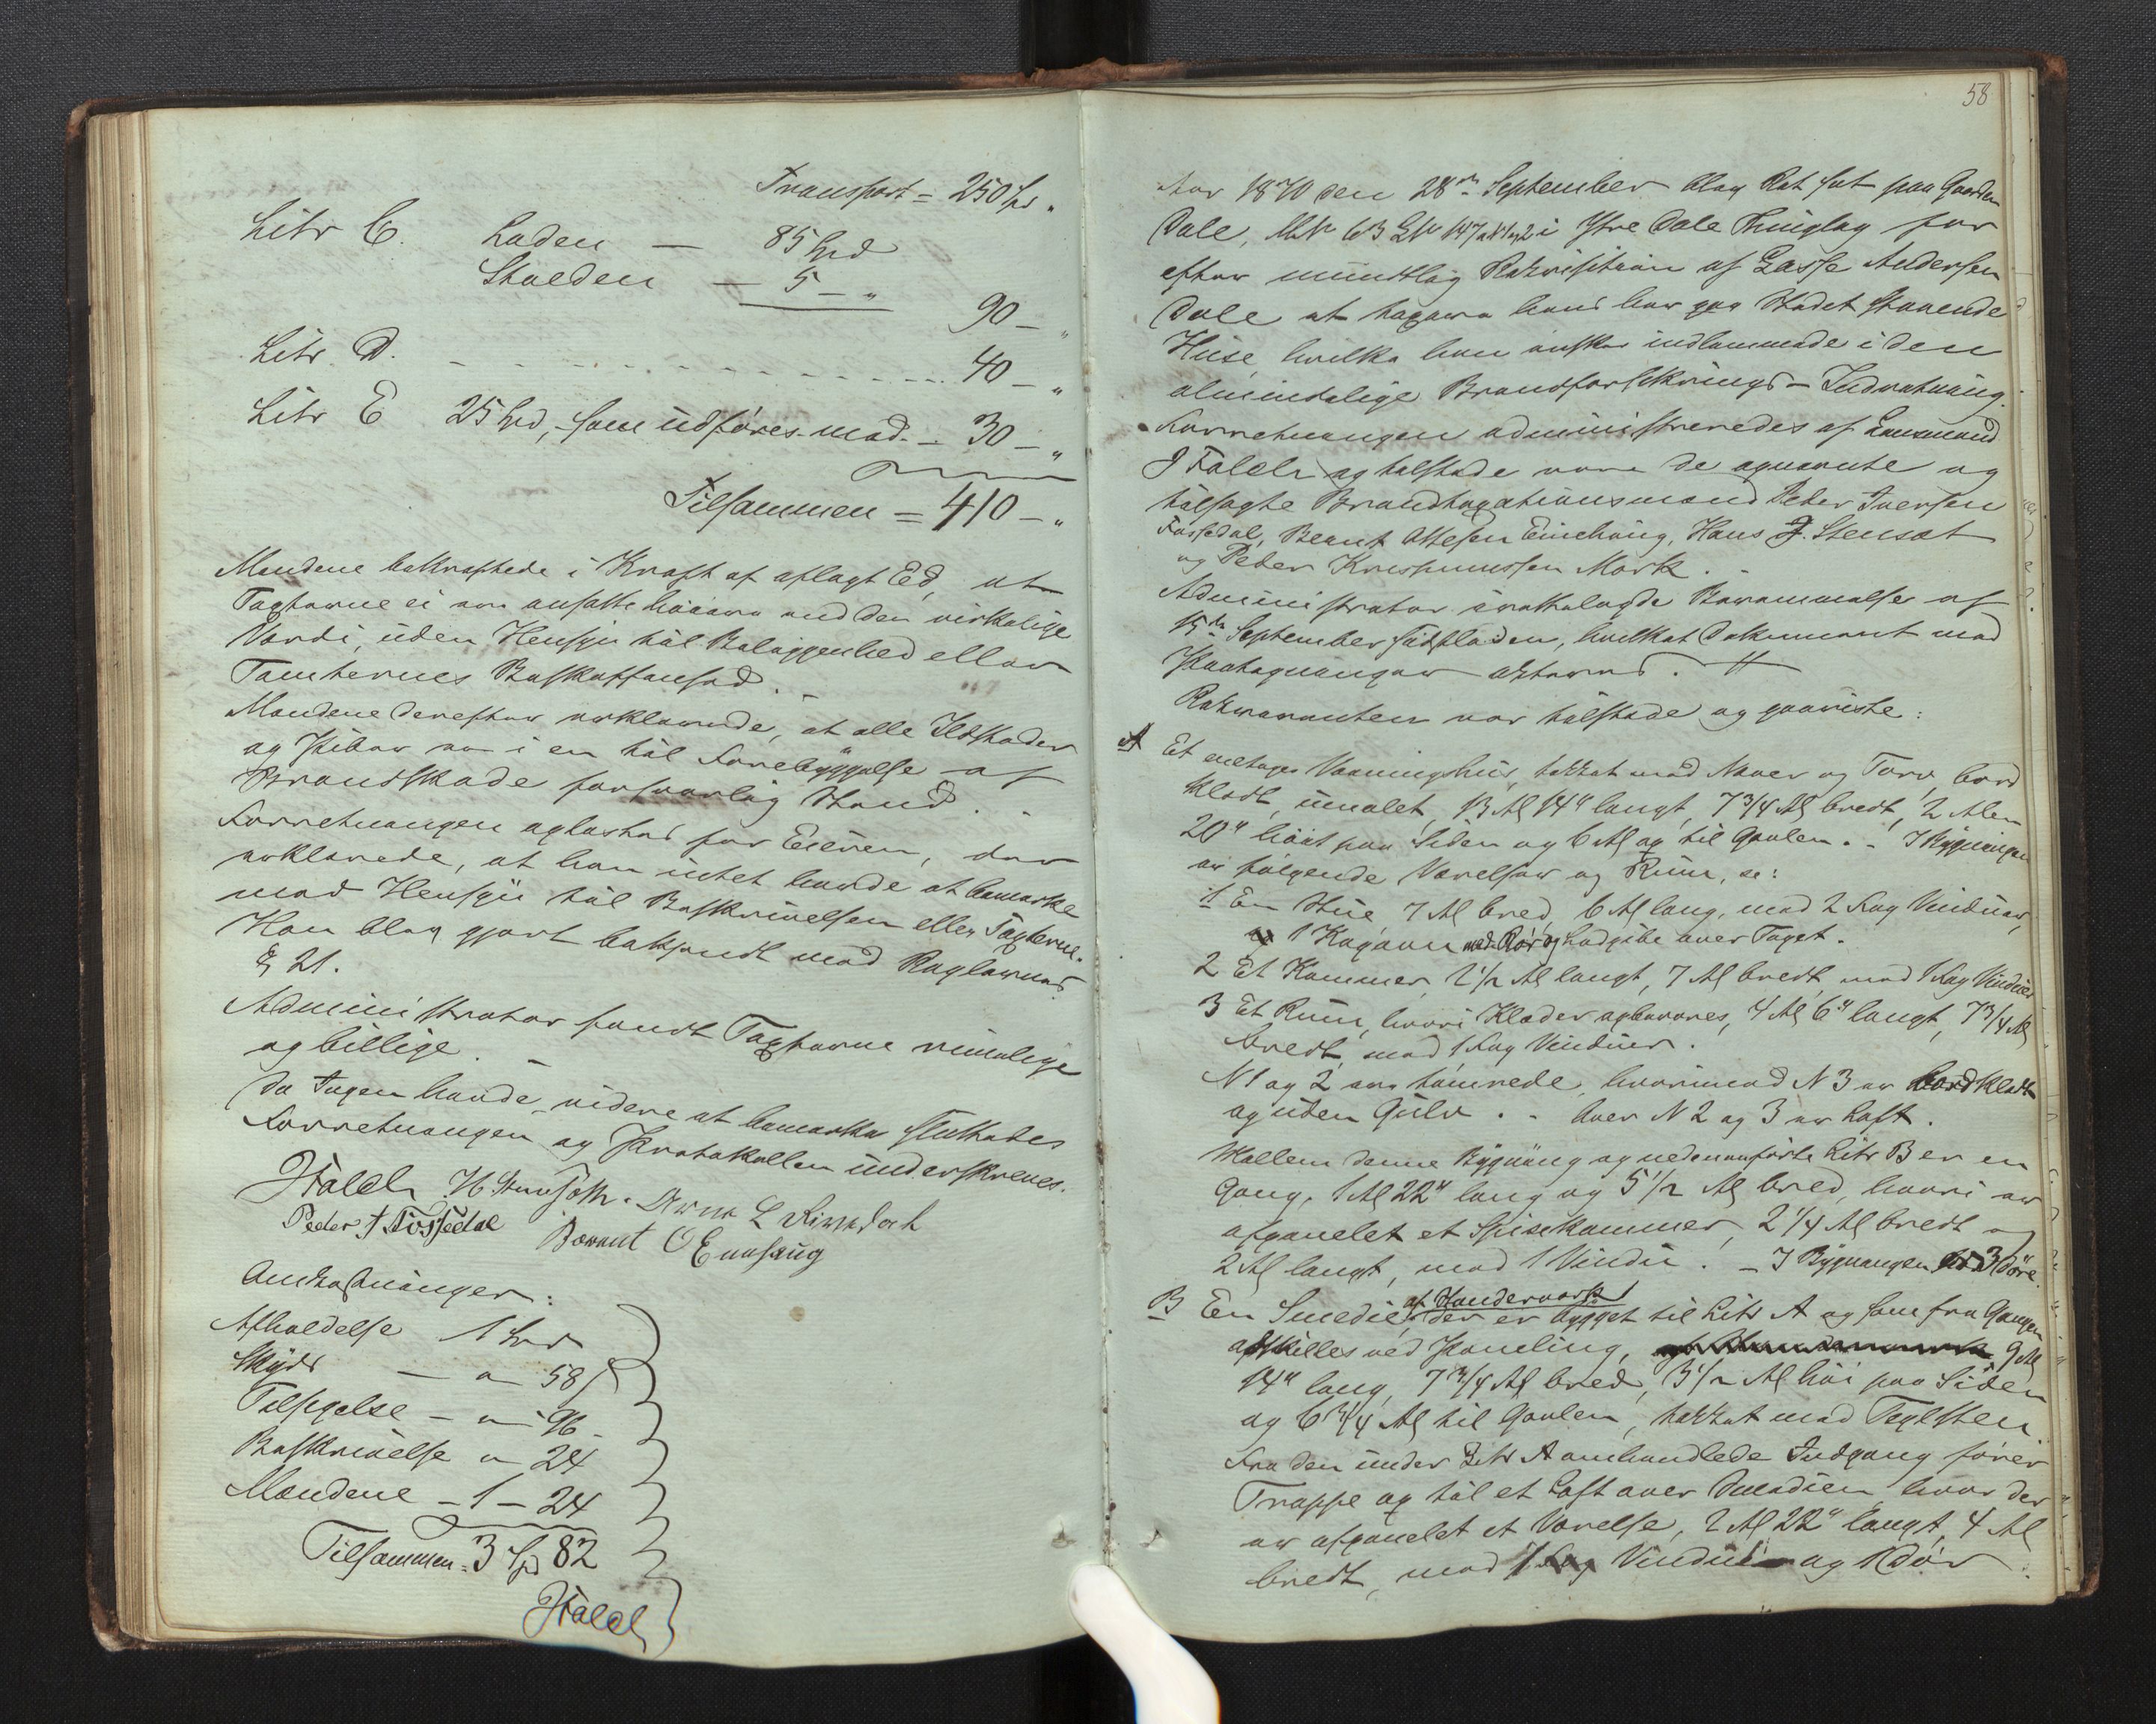 Transport = 250 Spd "
Litr C. Laden — 85 Spd
Stalden — 5 – "
90 – "
Litr. D. - - - - - - - - - - - 40 – "
Litr E 25 Spd, som udføres med – 30 – "
Tilsammen = 410 – "
Mændene bekræftede i Kraft af aflagt Ed, at
Taxterne ei ere ansatte høiere end den virkelige
Værdi, uden Hensyn til Beliggenhed eller
Tomternes Beskaffenhed. –
Mændene derefter erklærede, at alle Ildsteder
og Piber ere i en til Forebyggelse af
Brandskade forsvarlig Stand. –
Forretningen oplæstes for Eieren, der
erklærede, at han intet havde at bemærke
med Hensyn til Beskrivelsen eller Taxterne.
Han blev gjort bekjendt med Reglernes
§ 21.
Administrator fandt Taxterne rimelige
og billige. –
Da Ingen havde videre at bemærke sluttedes
Forretningen og Protokollen underskreves.
JFalch H. Stensøth. L
Peder I Fossedal Bernt O
Anstaltninger:
Afholdelse 1 Spd
Skyds — " 58 ß
Tilsigelse – " – 96 –
Beskrivelse " 24
Mændene – 1 – 24
Tilsammen = 3 Spd 82
JFalch
58
Aar 1870 den 28de September blev Ret sat paa Gaarden
Dale, M.N. 63 L.N. 147 i Ytre Dale Thinglag for
efter mundtlig Rekvisition af Lasse Andersen
Dale at taxere hans her paa Stedet staaende
Huse, hvilke han ønsker indlemmede i den
almindelige Brandforsikrings-Indretning.
Forretningen administreredes af Lensmand
J Falch og tilstede vare de opnævnte og
tilsagte Brandtaxationsmænd Peder Iversen
Fossedal, Bernt Ottesen, Hans J. Stensæt
og Peder Rasmussen Mork. –
Administrator fremlagde Berammelse af
15de September sidstleden, hvilket Dokument med
Paategninger akteres. #
Rekvirenten var tilstede og paaviste:
A Et enetages Vaaningshus, tækket med Næver og Torv, bord
klædt, umalet, 13 Al 14" langt, 7 3/4 Al bredt, 2 Alen
20" høit paa Siden og 6 Al op til Gavlen. – I Bygningen
er følgende Værelser og Rum, se:
1 En Stue 7 Al bred, 6 Al lang, med 2 Fag Vinduer,
1 Kogovn med Rør og Ladpibe over Taget.
2 Et Kammer, 2 1/2 Al langt, 7 Al bredt, med 1 Fag Vinduer
3 Et Rum, hvori Klæder opbevares, 4 Al 6" langt, 7 3/4 Al
bredt, med 1 Fag Vinduer.
N 1 og 2 ere tømrede, hvorimod N 3 er bordklædt
og uden Gulv. – Over N 2 og 3 er Loft.
Mellem denne Bygning og nedenanførte Litr B er en
Gang, 1 Al 22" lang og 5 1/2 Al bred, hvori er
afpanelet et Spisekammer, 2 1/4 Al bredt og
2 Al langt, med 1 Vindu. – I Bygningen er 3 Døre.
B En Smedie, af Bindeværk, der er bygget til Litr A og som fra Gangen
adskilles ved Paneling, 9 Al
14" lang, 7 3/4 Al bred, 3 1/2 Al høi paa Siden
og 6 3/4 Al til Gavlen, tækket med Teglsten.
Fra den under Litr A omhandlede Indgang fører
Trappe op til et Loft over Smedien, hvor der
er afpanelet et Værelse, 2 Al 22" langt, 4 Al
bredt, med 1 Fag Vindu og 1 Dør.